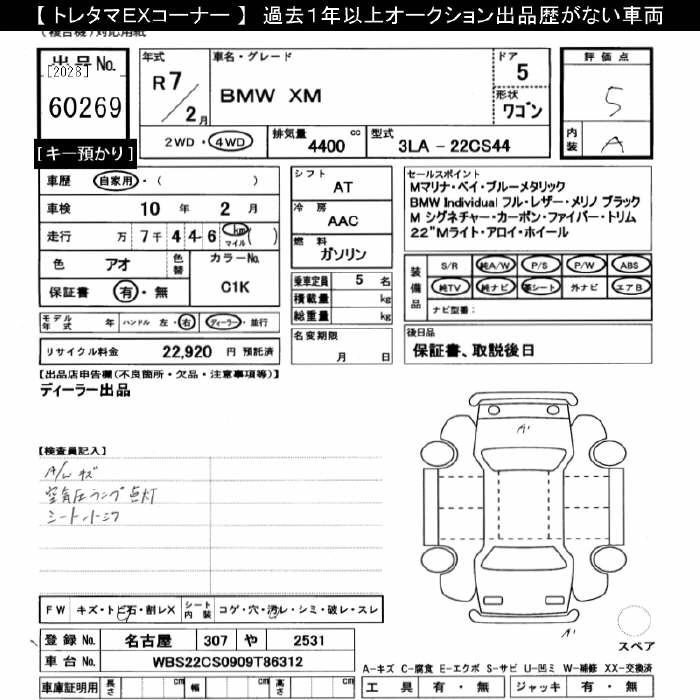 【 トレタマEXコーナー 】 過去1年以上オークション出品歴がない車両
(複合機)対応用紙
出品No.
[2028]
60269
[キー預かり]
年式
R7/2月
車名・グレード
BMW XM
ドア
5
形状
ワゴン
評価点
5
内装
A
2WD・4WD
排気量 4400 cc
型式 3LA - 22CS44
車歴 自家用・( )
車検 10 年 2 月
走行 万 7千 4 4 6 km マイル ( )
色 アオ
色替
カラーNo.
C1K
保証書 有・無
モデル年式 年 ハンドル 左・右 ディーラー・並行
リサイクル料金 22,920 円 預託済
シフト
AT
冷房
AAC
燃料
ガソリン
乗車定員 5 名
積載量 kg
総重量 kg
名変期限
月 日
セールスポイント
Mマリナ・ベイ・ブルーメタリック
BMW Individual フル・レザー・メリノ ブラック
M シグネチャー・カーボン・ファイバー・トリム
22"Mライト・アロイ・ホイール
装備品
S/R 純A/W P/S P/W ABS
純TV 純ナビ 革シート 外ナビ エアB
ナビ型番:
後日品
保証書、取説後日
【出品店申告欄(不良箇所・欠品・注意事項等)】
ディーラー出品
【検査員記入】
A/Wキズ
空気圧ランプ点灯
シートハーフ
A1
A1
FW キズ・トビ石・割レX
シート内装 コゲ・穴・汚レ・シミ・破レ・スレ
登録No. 名古屋 307 や 2531
車台No. WBS22CS0909T86312
車庫証明用 長さ cm 幅 cm 高さ cm
スペア
A-キズ C-腐食 E-エクボ S-サビ U-凹ミ W-補修 XX-交換済
工具 有・無 ジャッキ 有・無